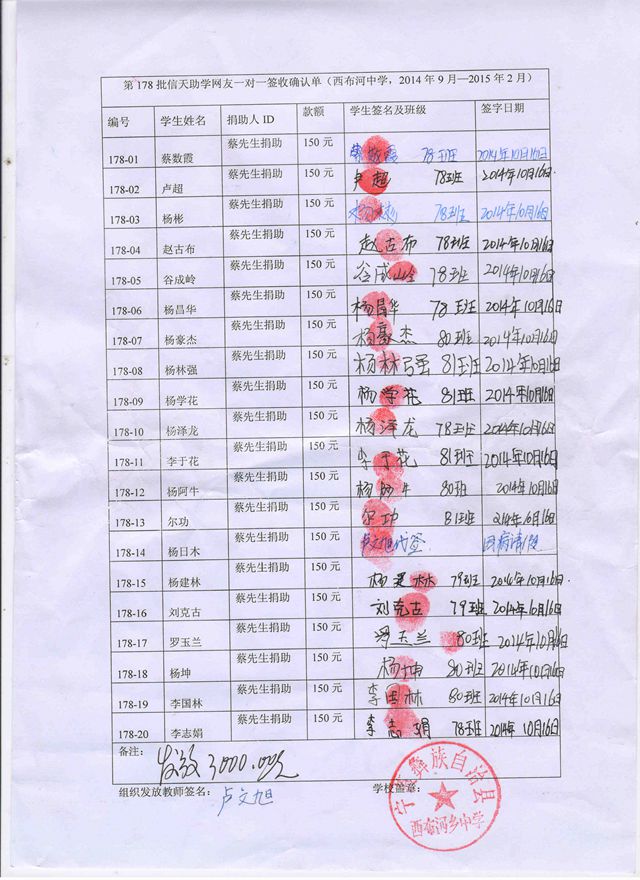 第 178 批信天助学网友一对一签收确认单（西布河中学，2014 年 9 月—2015 年 2 月）
编号 学生姓名 捐助人 ID 款额 学生签名及班级 签字日期
178-01 蔡数霞 蔡先生捐助 150 元 蔡数霞 78班 2014年10月16日
178-02 卢超 蔡先生捐助 150 元 卢超 78班 2014年10月16日
178-03 杨彬 蔡先生捐助 150 元 杨彬 78班 2014年10月16日
178-04 赵古布 蔡先生捐助 150 元 赵古布 78班 2014年10月16日
178-05 谷成岭 蔡先生捐助 150 元 谷成岭 78班 2014年10月16日
178-06 杨昌华 蔡先生捐助 150 元 杨昌华 78班 2014年10月16日
178-07 杨豪杰 蔡先生捐助 150 元 杨豪杰 80班 2014年10月16日
178-08 杨林强 蔡先生捐助 150 元 杨林强 81班 2014年10月16日
178-09 杨学花 蔡先生捐助 150 元 杨学花 81班 2014年10月16日
178-10 杨泽龙 蔡先生捐助 150 元 杨泽龙 78班 2014年10月16日
178-11 李于花 蔡先生捐助 150 元 李于花 81班 2014年10月16日
178-12 杨阿牛 蔡先生捐助 150 元 杨阿牛 80班 2014年10月16日
178-13 尔功 蔡先生捐助 150 元 尔功 81班 214年10月16日
178-14 杨日木 蔡先生捐助 150 元 卢文旭代签 因病请假
178-15 杨建林 蔡先生捐助 150 元 杨建林 79班 2014年10月16日
178-16 刘克古 蔡先生捐助 150 元 刘克古 79班 2014年10月16日
178-17 罗玉兰 蔡先生捐助 150 元 罗玉兰 80班 2014年10月16日
178-18 杨坤 蔡先生捐助 150 元 杨坤 80班 2014年10月16日
178-19 李国林 蔡先生捐助 150 元 李国林 80班 2014年10月16日
178-20 李志娟 蔡先生捐助 150 元 李志娟 78班 2014年10月16日
备注： 发放3000.00元
组织发放教师签名： 卢文旭 学校盖章：
彝族自治县
西布河乡中学